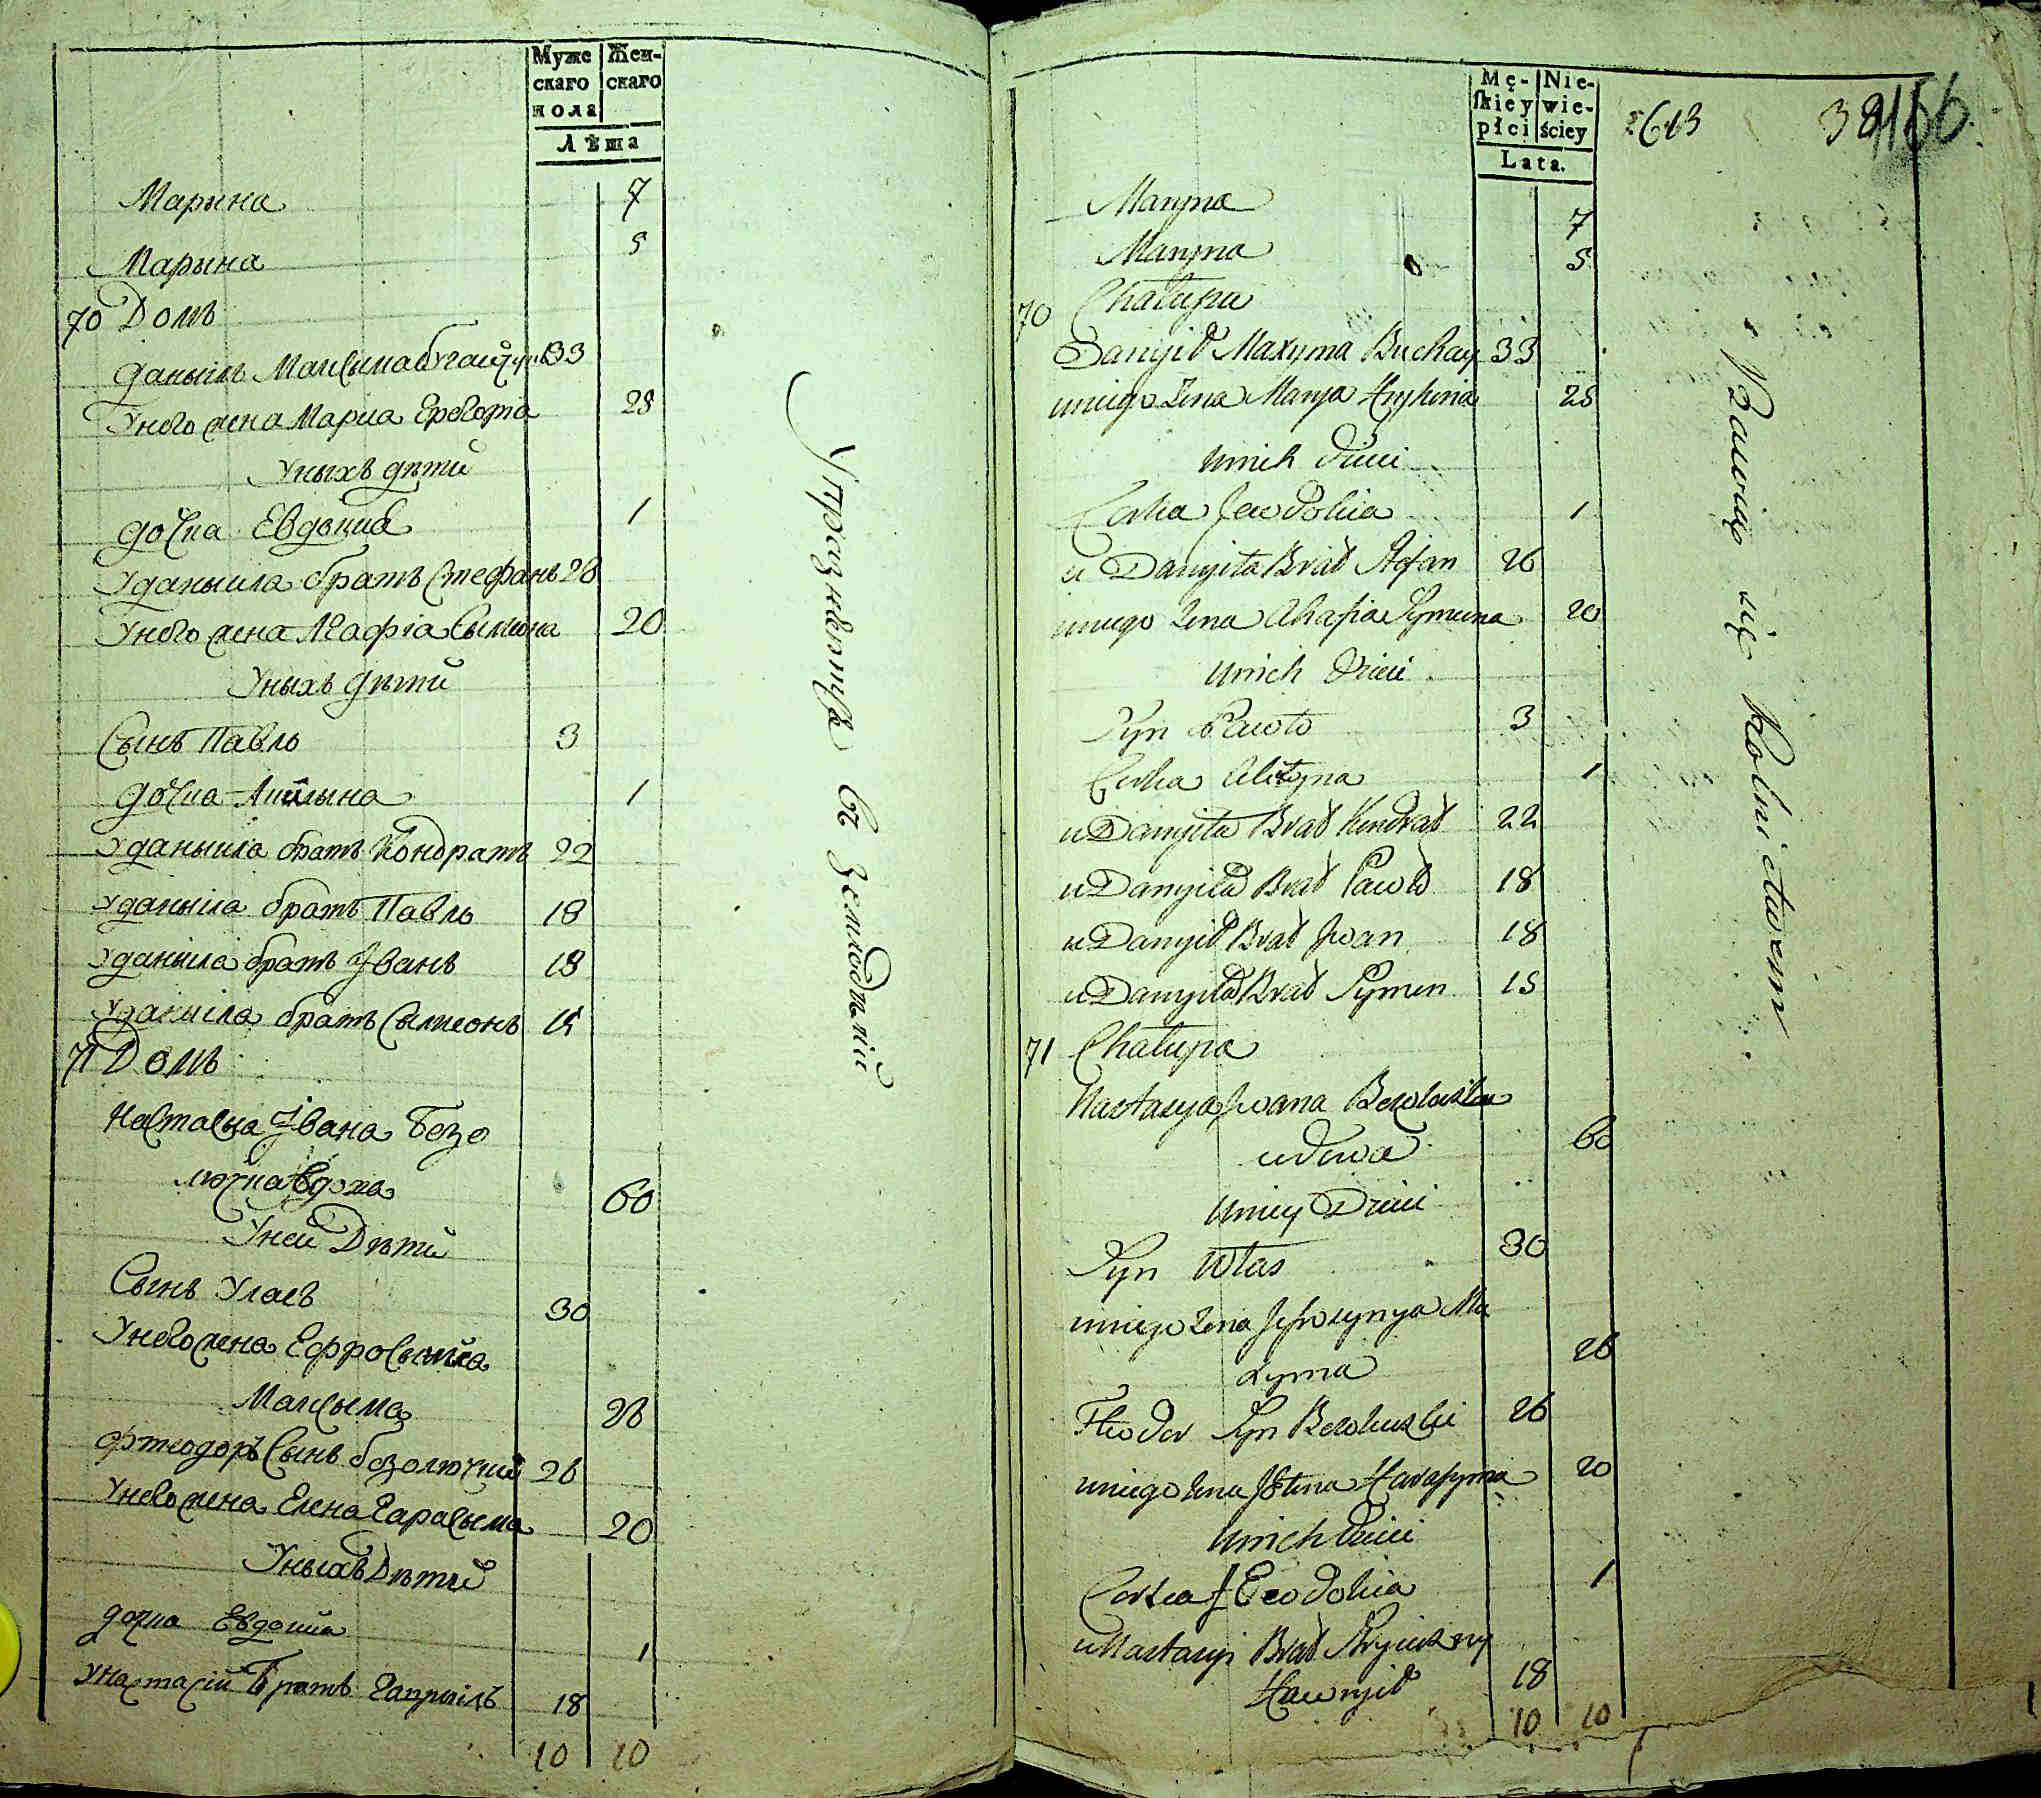 Муже Жен-
скаго скаго
пола
Лѣта
Марына 7
Марына 5
70 Домъ
Данылъ Максыма 33
У него жена Мариа 28
У ныхъ дѣти
Дочка Евдокиа 1
У Даныила братъ Стефанъ 26
У него жена Агафіа Сымеона 20
У ныхъ дѣти
Сынъ Павлъ 3
Дочка 1
У Даныила братъ Кондратъ 22
У Даныила братъ Павлъ 18
У Даныила братъ Іванъ 18
У Даныила братъ Сымеонъ 15
71 Домъ
Настасыа Івана Безо
лючка вдова 60
У ней Дѣти
Сынъ Уласъ 30
У него жена Ефросыниа
Максыма 26
Фтеодоръ Сынъ безолючкий 26
У него жена Елена Гарасыма 20
У ныхъ Дѣтий
дочка Евдокиа 1
У Настасіи Братъ Гаврыилъ 18
10 10
Упражняютца въ Земледѣліи
Mę- Nie-
skiey wie-
płci ściey
Lata.
2613 38 166
Maryna 7
Maryna 5
70 Chałupa
Danyił Maxyma Buchay 33
u niego Żena Marya Hryhoria 28
u nich dzieci
Corka Jewdokia 1
u Danyiła Brat Stefan 26
u niego Żena Ahafia Symeona 20
u nich dzieci
Syn Pawło 3
Corka 1
u Danyiła Brat Kindrat 22
u Danyiła Brat Pawło 18
u Danyiła Brat Jwan 18
u Danyiła Brat Symon 15
71 Chałupa
Nastasya Jwana Bezoluczka
wdowa 60
u niey Dzieci
Syn Włas 30
u niego Żena Jefrosynya Ma
xyma 26
Fteodor Syn Bezoluczki 26
u niego Żena Harasyma 20
u nich dzieci
Corka Jewdokia 1
u Nastasyi Brat
Hawryił 18
10 10
Bawią się Rolnictwem